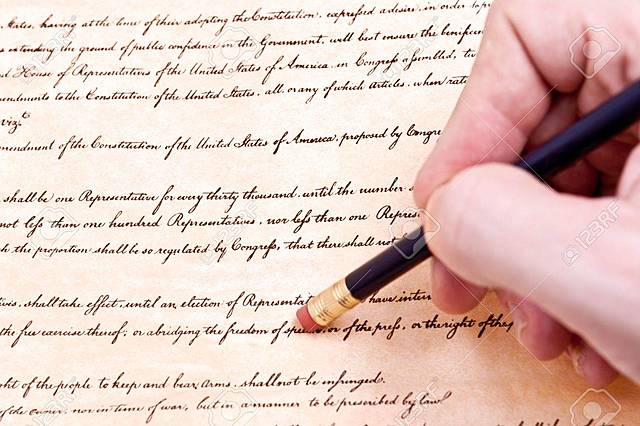 States, having at the time of their adopting the Constitution, expressed a desire, in order to
extending the ground of public confidence in the Government, will best ensure the beneficen
House of Representatives of the United States of America, in Congress assembled,
endments to the Constitution of the United States, all, or any of which Articles, when
viz.t
mendment of the Constitution of the United States of America, proposed by Congre
shall be one Representative for every thirty thousand, until the number
not less than one hundred Representatives, nor less than one Represe
the proportion shall be so regulated by Congress, that there shall not
tives, shall take effect, until an election of Representati have interv
the free exercise thereof; or abridging the freedom of spee or of the press, or the right of the
ght of the people to keep and bear Arms, shall not be infringed.
of the Owner, nor in time of war, but in a manner to be prescribed by law.
123RF
123RF